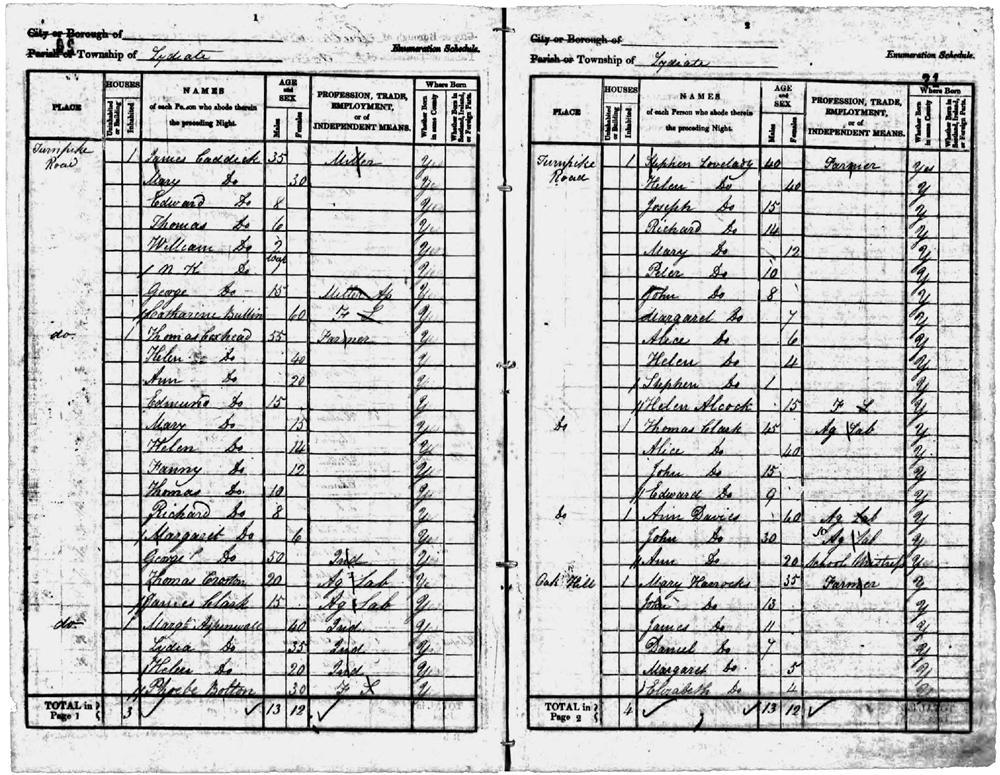 1
City or Borough of
Parish or Township of Lydiate
Enumeration Schedule.
PLACE
HOUSES
Uninhabited or Building
Inhabited
NAMES
of each Person who abode therein
the preceding Night.
AGE and SEX
Males
Females
PROFESSION, TRADE,
EMPLOYMENT,
or of
INDEPENDENT MEANS.
Where Born
Whether Born in same County
Whether Born in Scotland, Ireland, or Foreign Parts.
Turnpike Road 1 James Caddick 35 Miller Y
Mary Do 30 Y
Edward Do 8 Y
Thomas Do 6 Y
William Do 2 Y
N K Do Y
George Do 15 Miller Ap Y
Catharine Bullin 60 F S Y
do 1 Thomas Coxhead 55 Farmer Y
Helen Do 40 Y
Ann Do 20 Y
Edmund Do 15 Y
Mary Do 15 Y
Helen Do 14 Y
Fanny Do 12 Y
Thomas Do 10 Y
Richard Do 8 Y
Margaret Do 6 Y
George Do 50 Ind Y
Thomas Croston 20 Ag Lab Y
James Clark 15 Ag Lab Y
do 1 Margt Aspinwall 60 Ind Y
Lydia Do 35 Ind Y
Helen Do 20 Ind Y
Phoebe Bolton 30 F S Y
TOTAL in Page 1 3 13 12
2
City or Borough of
Parish or Township of Lydiate
Enumeration Schedule.
PLACE
HOUSES
Uninhabited or Building
Inhabited
NAMES
of each Person who abode therein
the preceding Night.
AGE and SEX
Males
Females
PROFESSION, TRADE,
EMPLOYMENT,
or of
INDEPENDENT MEANS.
Where Born
Whether Born in same County
Whether Born in Scotland, Ireland, or Foreign Parts.
Turnpike Road 1 Stephen Lovelady 40 Farmer Yes
Helen Do 40 Y
Joseph Do 15 Y
Richard Do 14 Y
Mary Do 12 Y
Peter Do 10 Y
John Do 8 Y
Margaret Do 7 Y
Alice Do 6 Y
Helen Do 4 Y
Stephen Do 1 Y
Helen Alcock 15 F S Y
Do 1 Thomas Clark 45 Ag Lab Y
Alice Do 40 Y
John Do 15 Y
Edward Do 9 Y
Do 1 Ann Davies 60 Ag Lab Y
John Do 30 Ag Lab Y
Ann Do 20 School Mistress Y
Oak Hill 1 Mary Harrocks 35 Farmer Y
John Do 13 Y
James Do 11 Y
Daniel Do 7 Y
Margaret Do 5 Y
Elizabeth Do 4 Y
TOTAL in Page 2 4 13 12